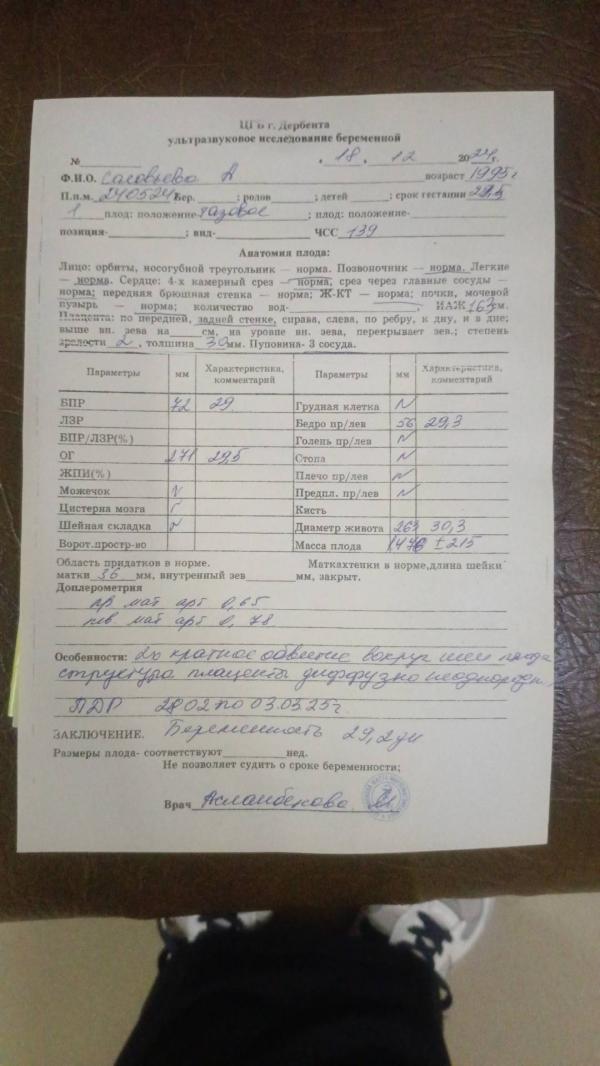 ЦГБ г. Дербента
ультразвуковое исследование беременной
№ 18. 12 2024г.
Ф.И.О. А возраст 1995г
П.п.м. 240524г Бер. ; родов ; детей ; срок гестации 29,5
1 плод: положение тазовое ; плод: положение-
позиция- ; вид- ЧСС 139
Анатомия плода:
Лицо: орбиты, носогубной треугольник — норма. Позвоночник — норма. Легкие
— норма. Сердце: 4-х камерный срез — норма, срез через главные сосуды —
норма; передняя брюшная стенка — норма; Ж-КТ — норма; почки, мочевой
пузырь — норма; количество вод- , ИАЖ 163 см.
Плацента: по передней, задней стенке, справа, слева, по ребру, к дну, и в дне;
выше вн. зева на см, на уровне вн. зева, перекрывает зев.; степень
зрелости 2 , толщина 30 мм. Пуповина- 3 сосуда.
Параметры мм Характеристика, комментарий Параметры мм Характеристика, комментарий
БПР 72 29 Грудная клетка N
ЛЗР Бедро пр/лев 56 29,3
БПР/ЛЗР(%) Голень пр/лев N
ОГ 271 29,5 Стопа N
ЖПИ(%) Плечо пр/лев N
Можечок N Предпл. пр/лев N
Цистерна мозга Кисть
Шейная складка N Диаметр живота 263 30,3
Ворот.простр-во Масса плода 1476 ±215
Область придатков в норме. Маткахтепки в норме,длина шейки
матки 36 мм, внутренный зев мм, закрыт.
Доплерометрия
пр мат арт 0,65
лев мат арт 0,78
Особенности: 2х кратное обвитие вокруг шеи плода
структура плаценты диффузно неоднородн.,
ПДР 28 02 по 03.03 25г
ЗАКЛЮЧЕНИЕ. Беременность 29,2дн
Размеры плода- соответствуют нед.
Не позволяет судить о сроке беременности;
Врач Асланбекова